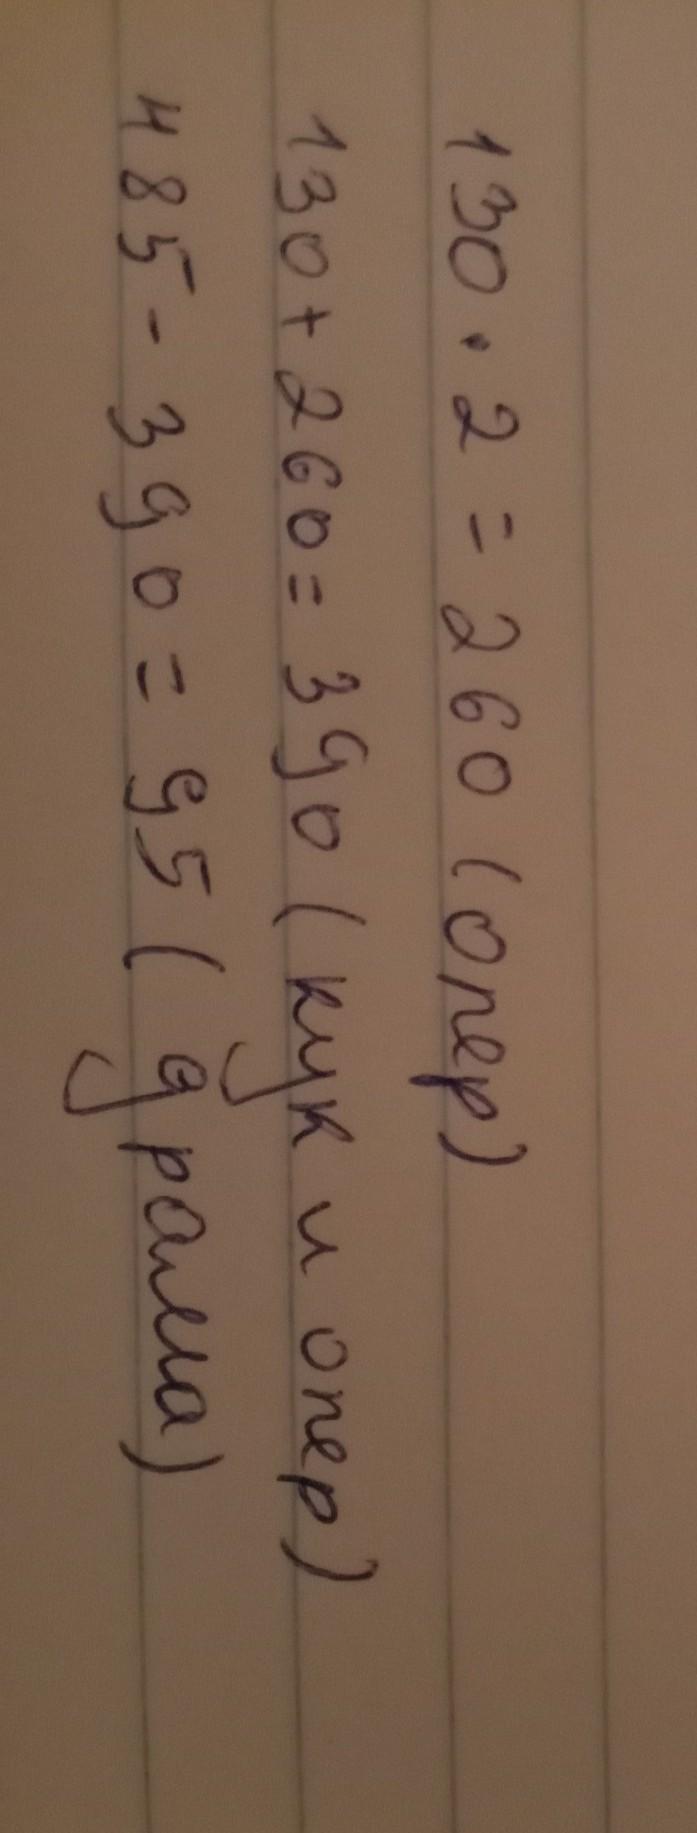 130 · 2 = 260 (опер)
130 + 260 = 390 (кук и опер)
485 - 390 = 95 (драмма)